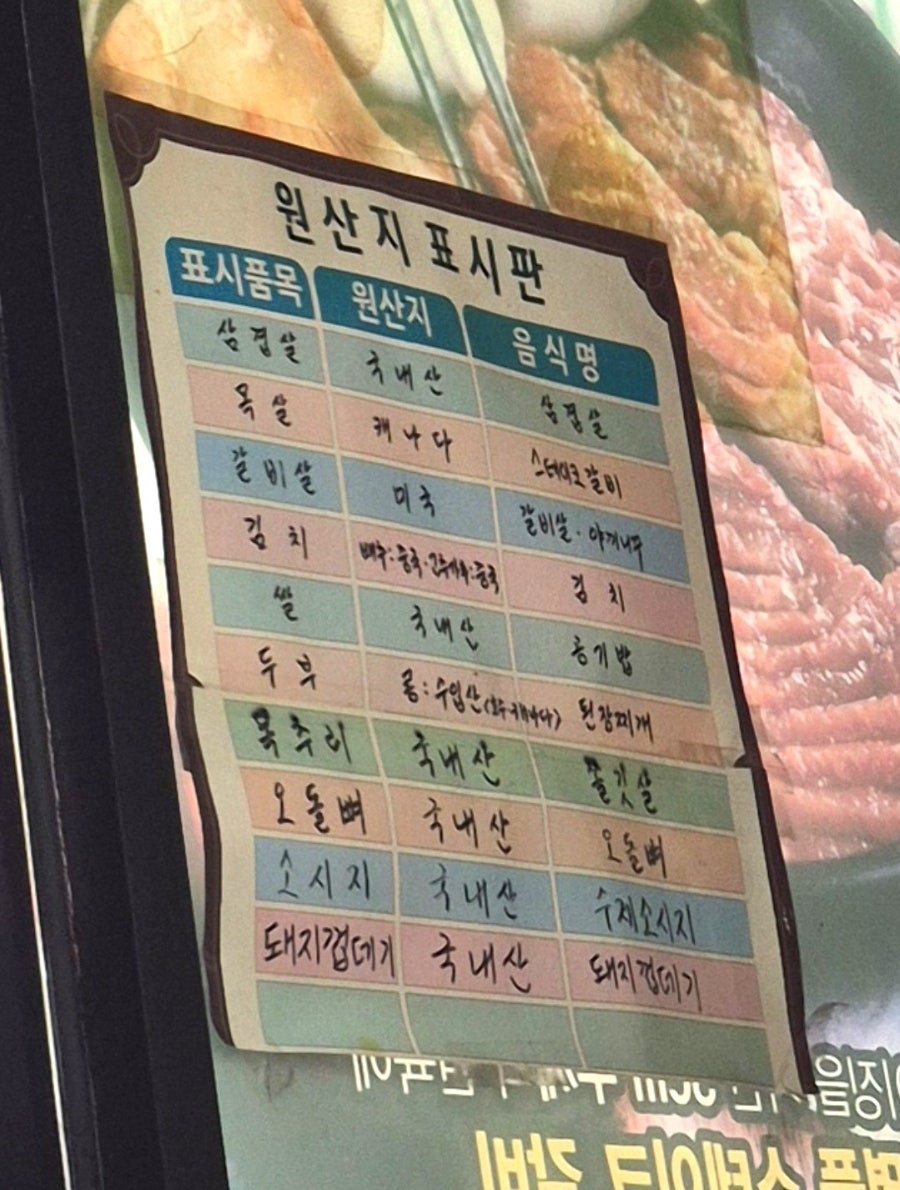 원산지 표시판
표시품목 원산지 음식명
삼겹살 국내산 삼겹살
목살 캐나다 스테이크갈비
갈비살 미국 갈비살·
김치 배추:중국·고추가루:중국 김치
쌀 국내산 공기밥
두부 콩:수입산 된장찌개
목추리 국내산 쫄깃살
오돌뼈 국내산 오돌뼈
소시지 국내산 수제소시지
돼지껍데기 국내산 돼지껍데기
스테이크 갈비